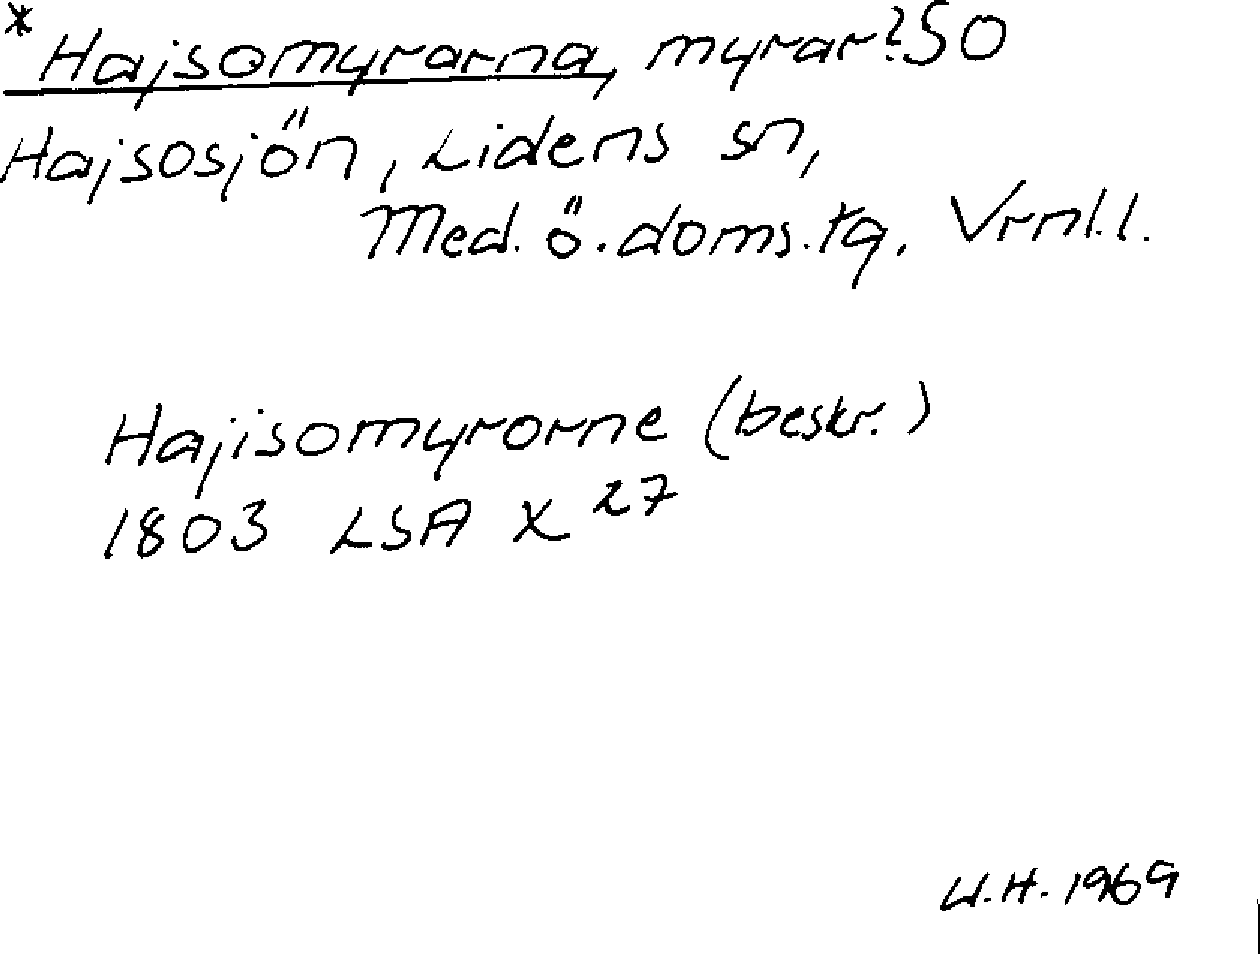 * Hajsomyrarna, myrar? SO
Hajsosjön, Lidens sn,
Med. ö. doms. tg. Vrnl.l.
Hajisomyrorne (beskr.)
1803 LSA X 27
U.H. 1969